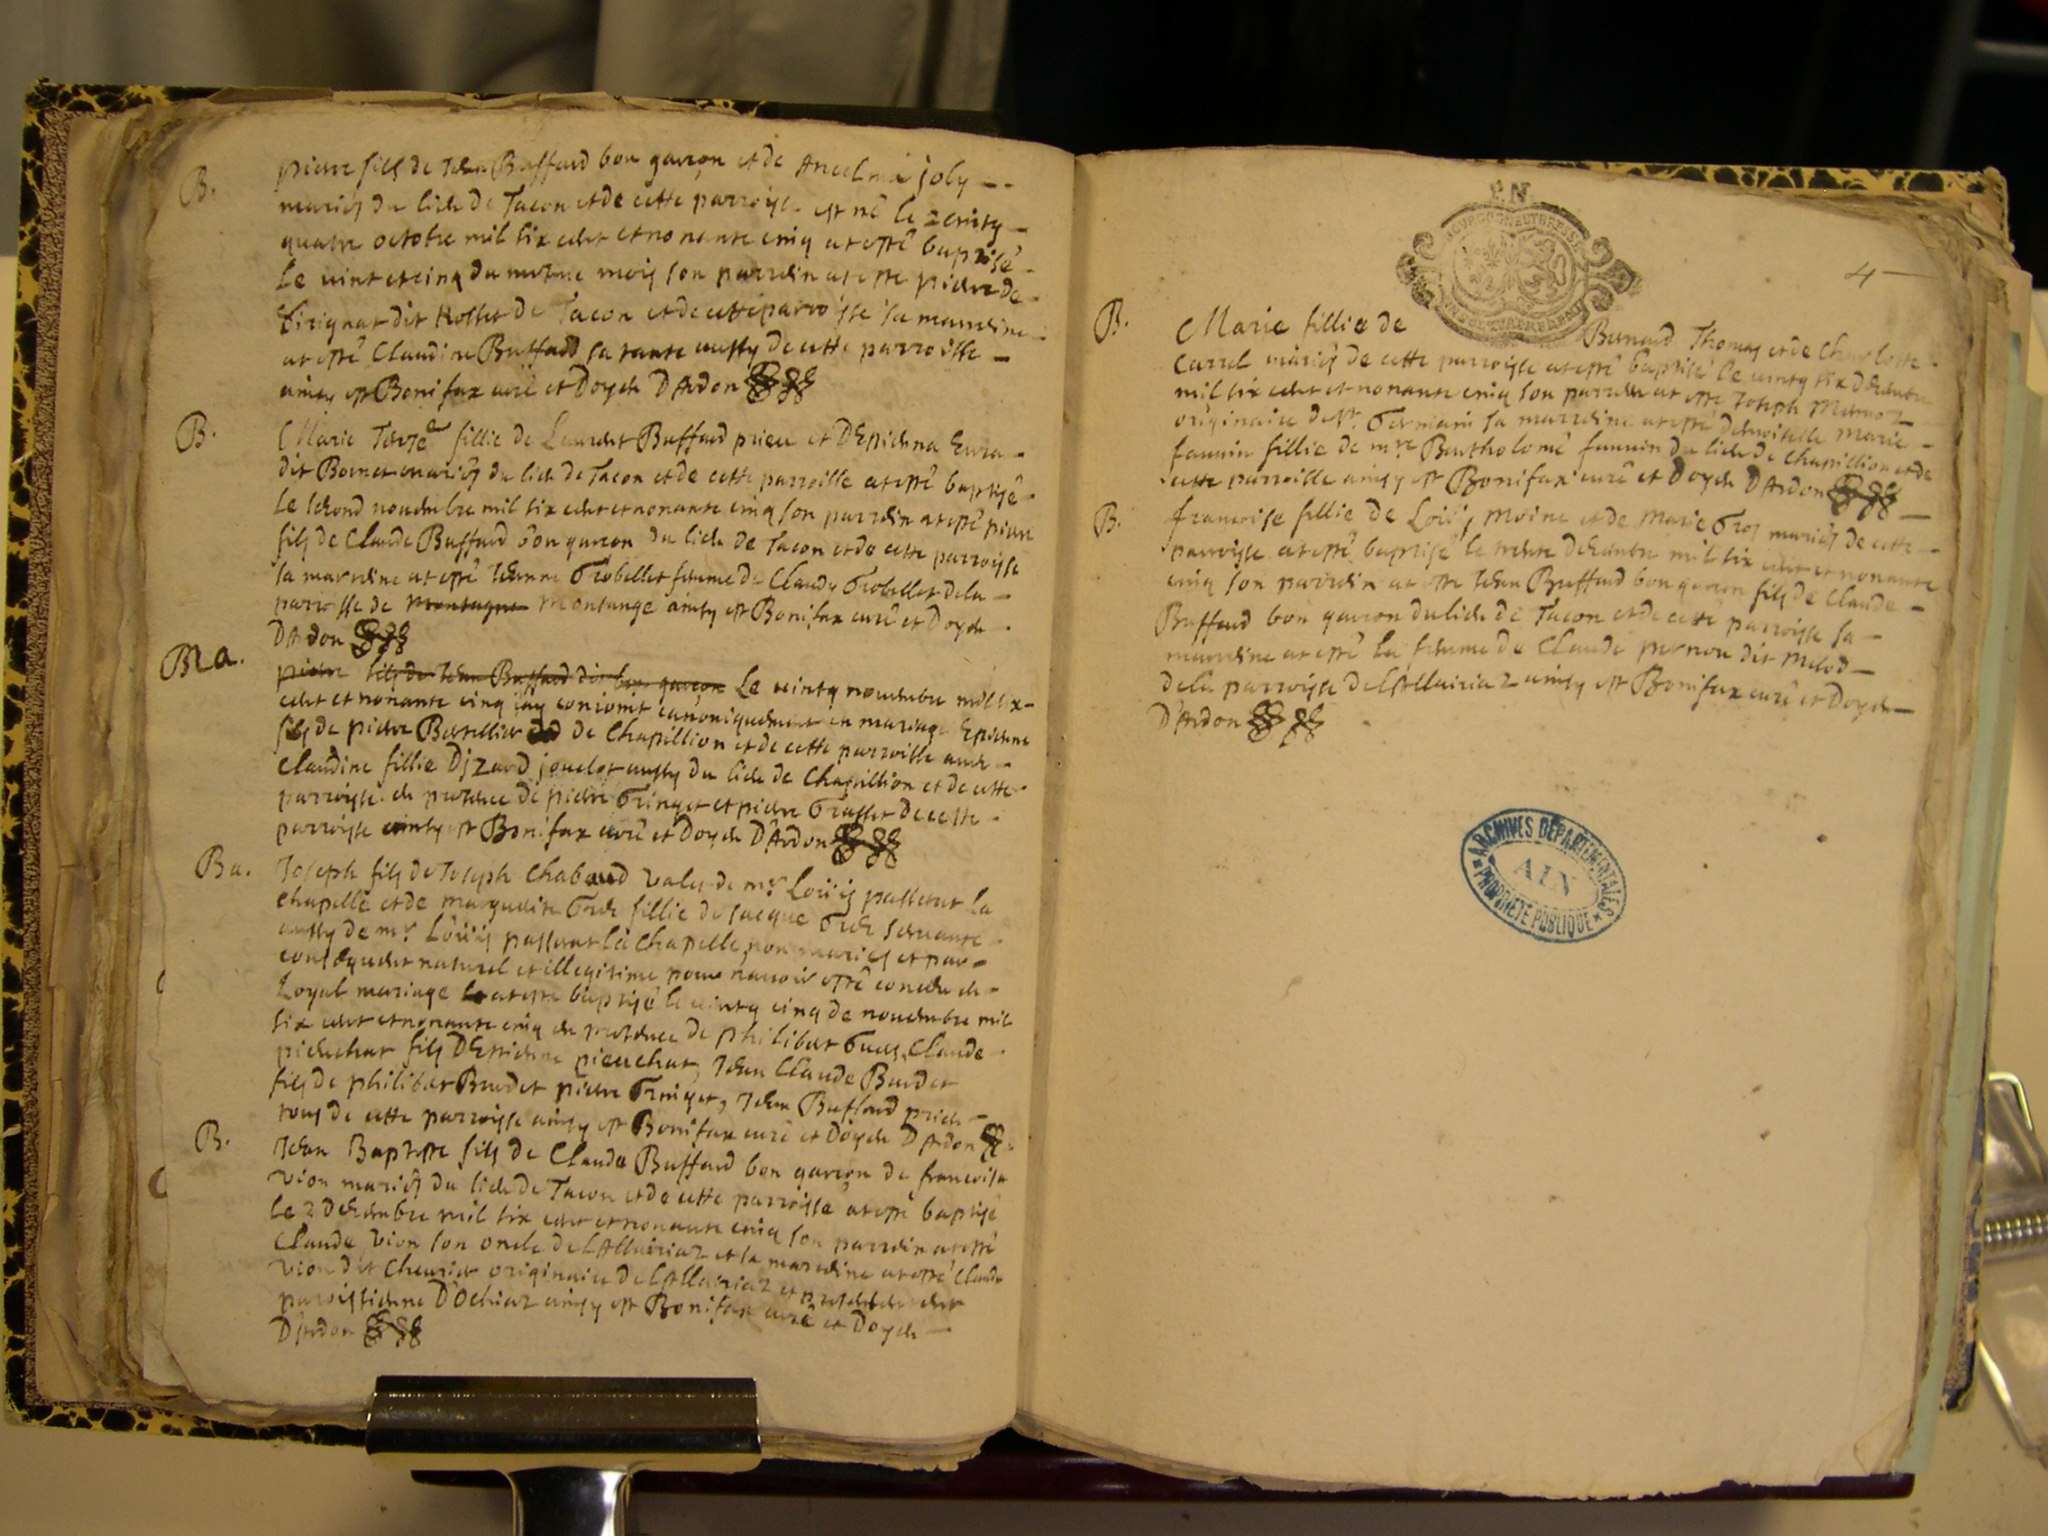 B.
pierre fils de Jean Buffard bon garçon et de Ancelma joly
mariés du lieu de Tacon et de cette parroisse est né le vinty
quatre octobre mil six cent et nonante cinq at esté baptisé
Le vint et cinq du mesme mois son parrein at esté pierre de
dit Rosset de Tacon et de cette parroisse sa marreine
at esté Claudine Buffard sa tante aussy de cette parroisse
ainsy est Bonifax curé et Doyen D'Ardon
B.
Marie fillie de Laurent Buffard prieu et D'Epiena
dit Bornet mariés du lieu de Tacon et de cette parroisse at esté baptisé
Le second novembre mil six cent et nonante cinq son parrein at esté pierre
fils de Claude Buffard bon garcon du lieu de Tacon et de cette parroisse
sa marreine at esté Jeanne Grobellet femme de Claudy Grobellet de la
parroisse de Montagne Montange ainsy est Bonifax curé et Doyen
D'Ardon
Ma.
pierre fils de Jean Buffard dit bon garçon Le vinty novembre mil six
cent et nonante cinq iay conjoint canoniquement en mariage Epiene
fils de pierre de Chapillion et de cette parroisse avec
Claudine fillie jouclet aussy du lieu de Chapillion et de cette
parroisse en presence de pierre Gringet et pierre Grasset de cette
parroisse ainsy est Bonifax curé et Doyen D'Ardon
Ba.
Joseph fils de Joseph Chabaud valet de mr Loüis passerat la
chapelle et de marguerite fillie de Jacque servante
aussy de mr Loüis passerat la Chapelle, non mariés et par
consequent naturel et illegitime pour navoir esté conceu en
Loyal mariage at esté baptisé le vinty cinq de novembre mil
six cent et nonante cinq en presence de philibert Claude
fils D'Estiene pieuchat, Jean Claude Burdet
fils de philibert Burdet pierre Gringet, Jean Buffard prieu
tous de cette parroisse ainsy est Bonifax curé et Doyen D'Ardon
B.
Jean Baptiste fils de Claude Buffard bon garçon de francoisa
vion mariés du lieu de Tacon et de cette parroisse at esté baptisé
le 2 decembre mil six cent et nonante cinq son parrein at esté
Claude vion son oncle de L'Allairiaz et sa marreine at esté Claude
vion dit originaire de L'Allairiaz et
D'Ochiaz ainsy est Bonifax curé et Doyen
D'Ardon
4
B.
Marie fillie de Bernard Thomas et de Charlotte
Carrel mariés de cette parroisse at esté baptisé le vinty six decembre
mil six cent et nonante cinq son parrein at esté Joseph
originaire de St. Germain sa marreine at esté demoiselle Marie
favvin fillie de mre Bartholomé favvin du lieu de Chapillion et de
cette parroisse ainsy est Bonifax curé et Doyen D'Ardon
B.
francoise fillie de Loüis Moine et de Marie Gros mariés de cette
parroisse at esté baptisé le trente decembre mil six cent et nonante
cinq son parrein at esté Jean Buffard bon garcon fils de Claude
Buffard bon garcon du lieu de Tacon et de cette parroisse sa
marreine at esté la femme de Claude pernou dit
de la parroisse de L'Allairiaz ainsy est Bonifax curé et Doyen
D'Ardon
ARCHIVES DÉPARTEMENTALES
AIN
PROPRIÉTÉ PUBLIQUE